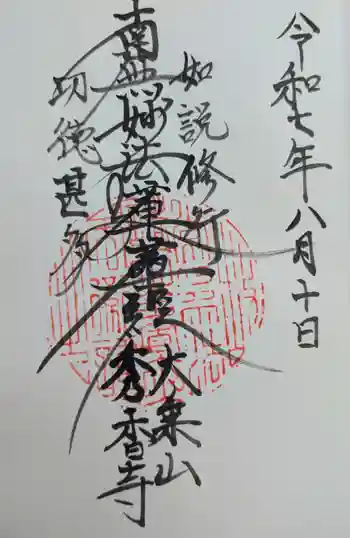 令和七年八月十日
如説修行
南無妙法蓮華経
功徳甚多
大乗山
秀香寺